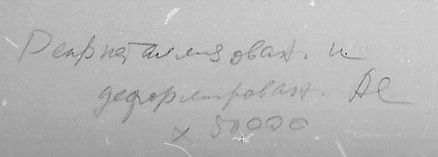 Рекристаллизован. и
деформирован. Al
x 50000